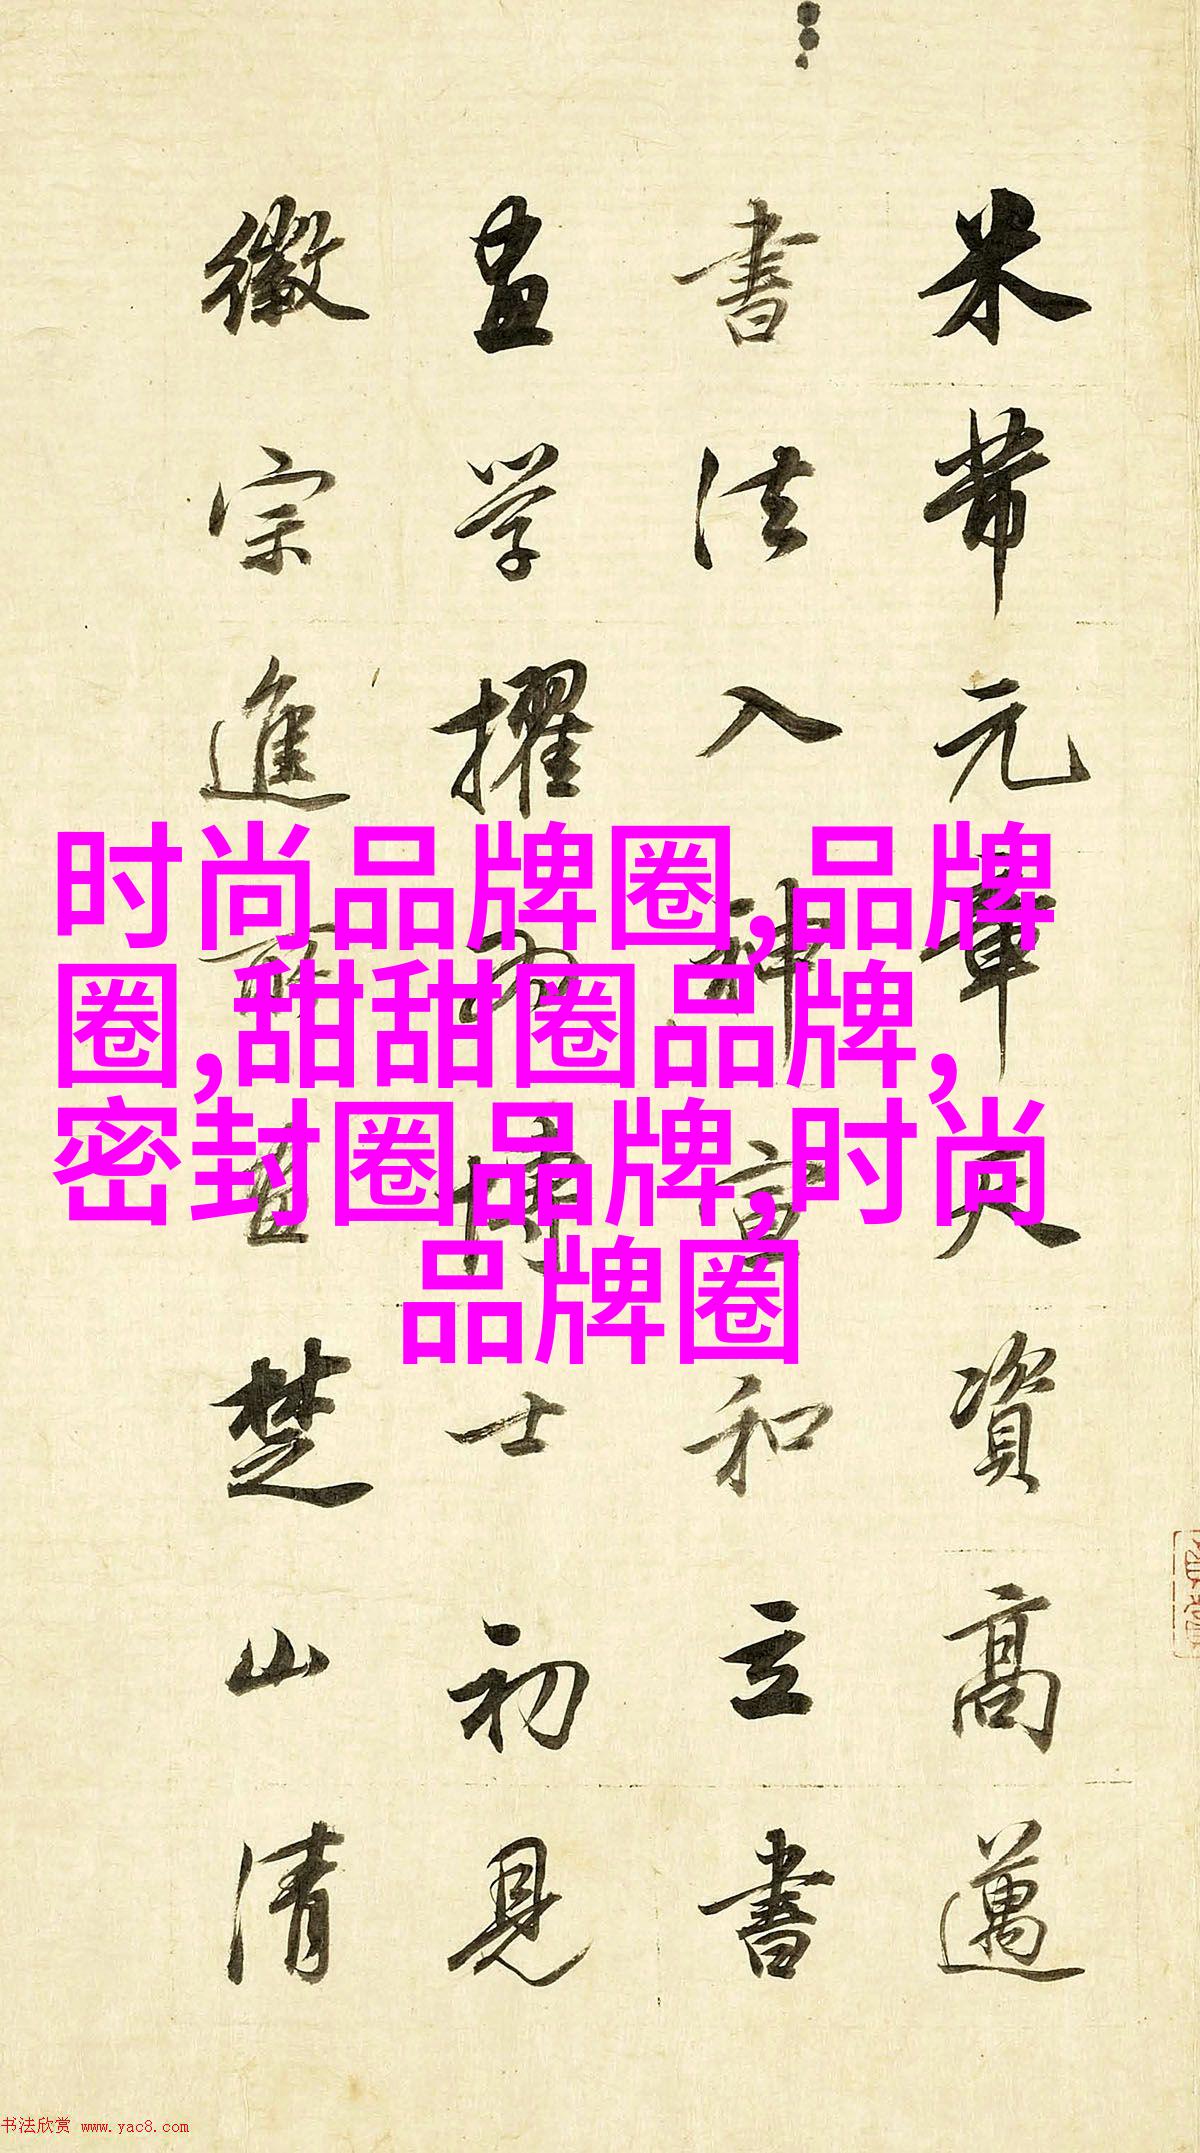 时尚品牌圈,品牌
圈,甜甜圈品牌,
密封圈品牌,时尚
品牌圈
米芾元章天資高邁
書法入神宣和立書
畫学擢為博士初見
徽宗進所畫楚山清
书法欣赏 www.yac8.com